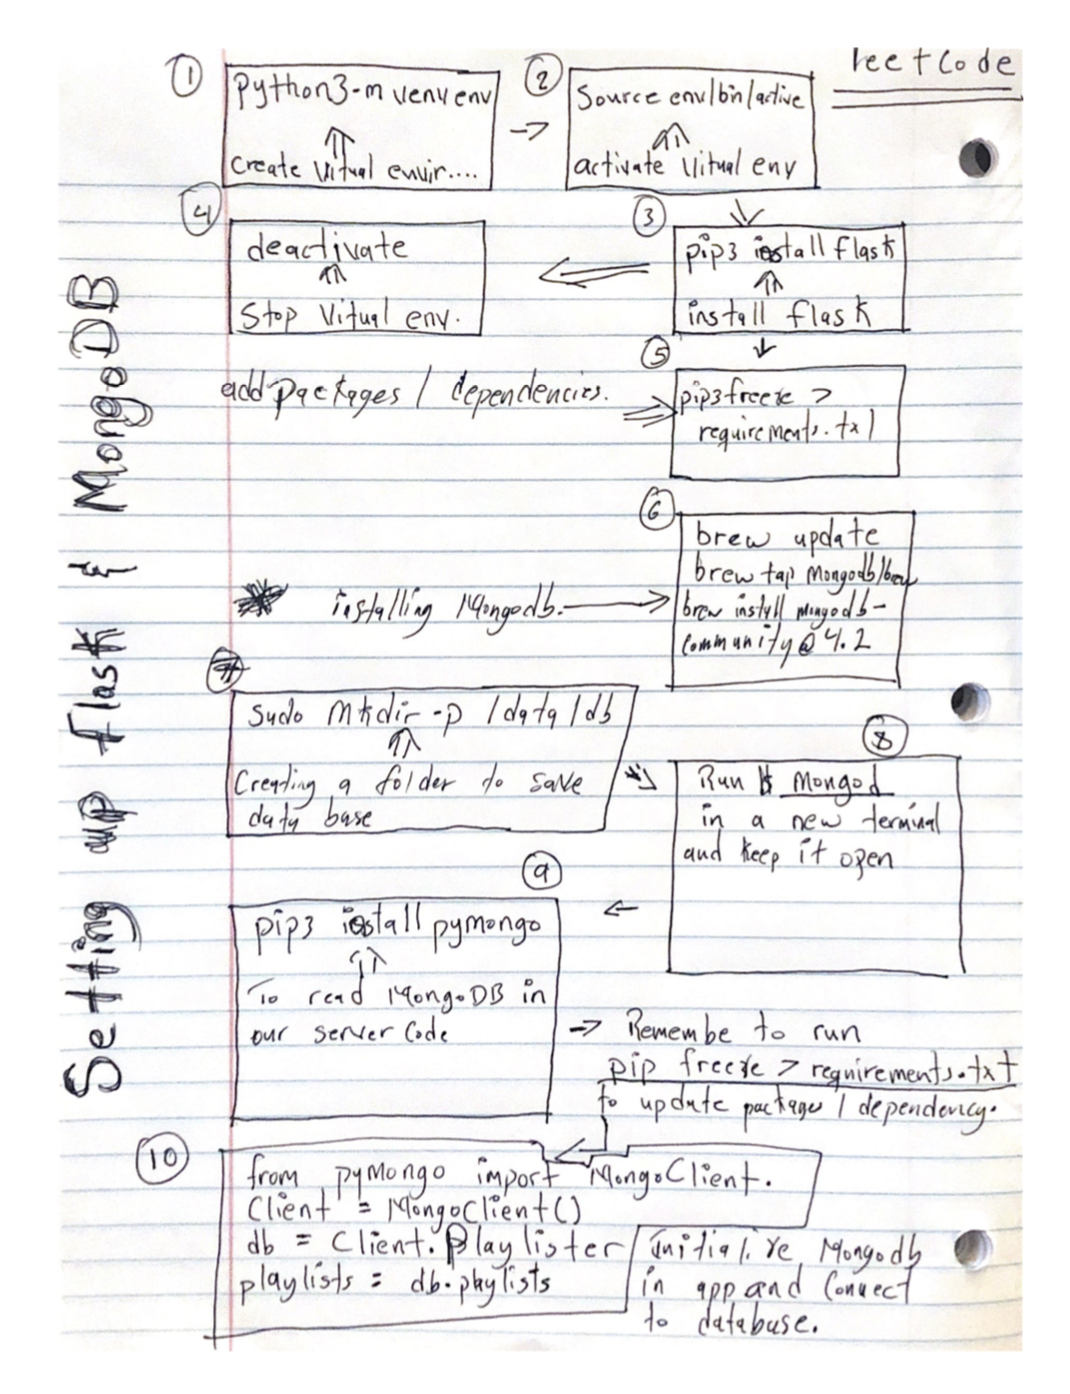 leetcode
Setting up flask & MongoDB
1
python3 -m venv env
create Vitual envir....
2
Source env/bin/active
activate Vitual env
4
deactivate
Stop Vitual env.
3
pip3 install flask
install flask
5
add packages / dependencies.
pip3 freeze >
requirements.txt
6
brew update
brew tap Mongodb/brew
installing Mongodb.
brew install mongodb-
Community@4.2
7
sudo mkdir -p /data/db
Creating a folder to save
data base
8
Run Mongod
in a new terminal
and keep it open
9
pip3 install pymongo
To read MongoDB in
our server Code
Remembe to run
pip freeze > requirements.txt
to update package / dependency.
10
from pymongo import MongoClient.
Client = MongoClient()
db = Client.Playlister
playlists = db.playlists
initialize Mongodb
in app and Connect
to database.